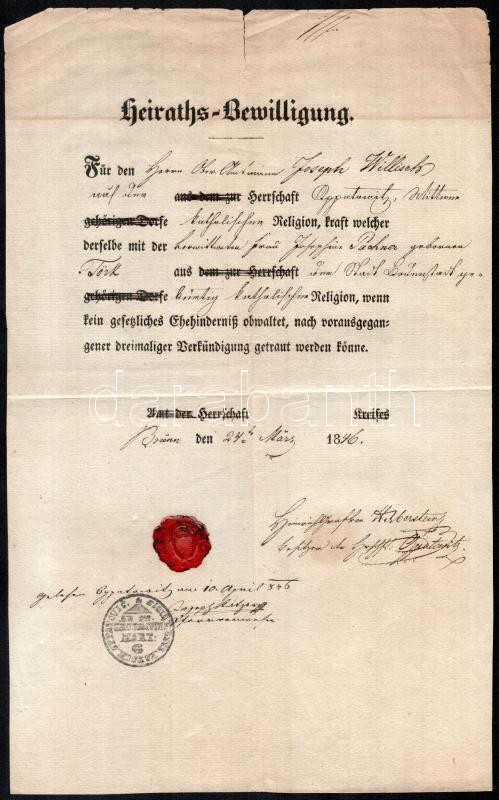 Heiraths-Bewilligung.
Für den Herrn Joseph Willisch
auf der aus dem zur Herrschaft Oppatowitz, Wittwer
gehörigen Dorfe katholischen Religion, kraft welcher
derselbe mit der verwittweten Frau Josephine Pachner geborenen
Török aus dem zur Herrschaft der Stadt Bodenstadt ge-
gehörigen Dorfe bürtig katholischen Religion, wenn
kein gesetzliches Ehehinderniß obwaltet, nach vorausgegan-
gener dreimaliger Verkündigung getraut werden könne.
darabanth
Amt der Herrschaft Kreises
Brünn den 24ten März 1846.
Heinrich Graf von Herberstein
Besitzer der Herrschft. Opatowitz
gelesen Oppatowitz am 10. April 846